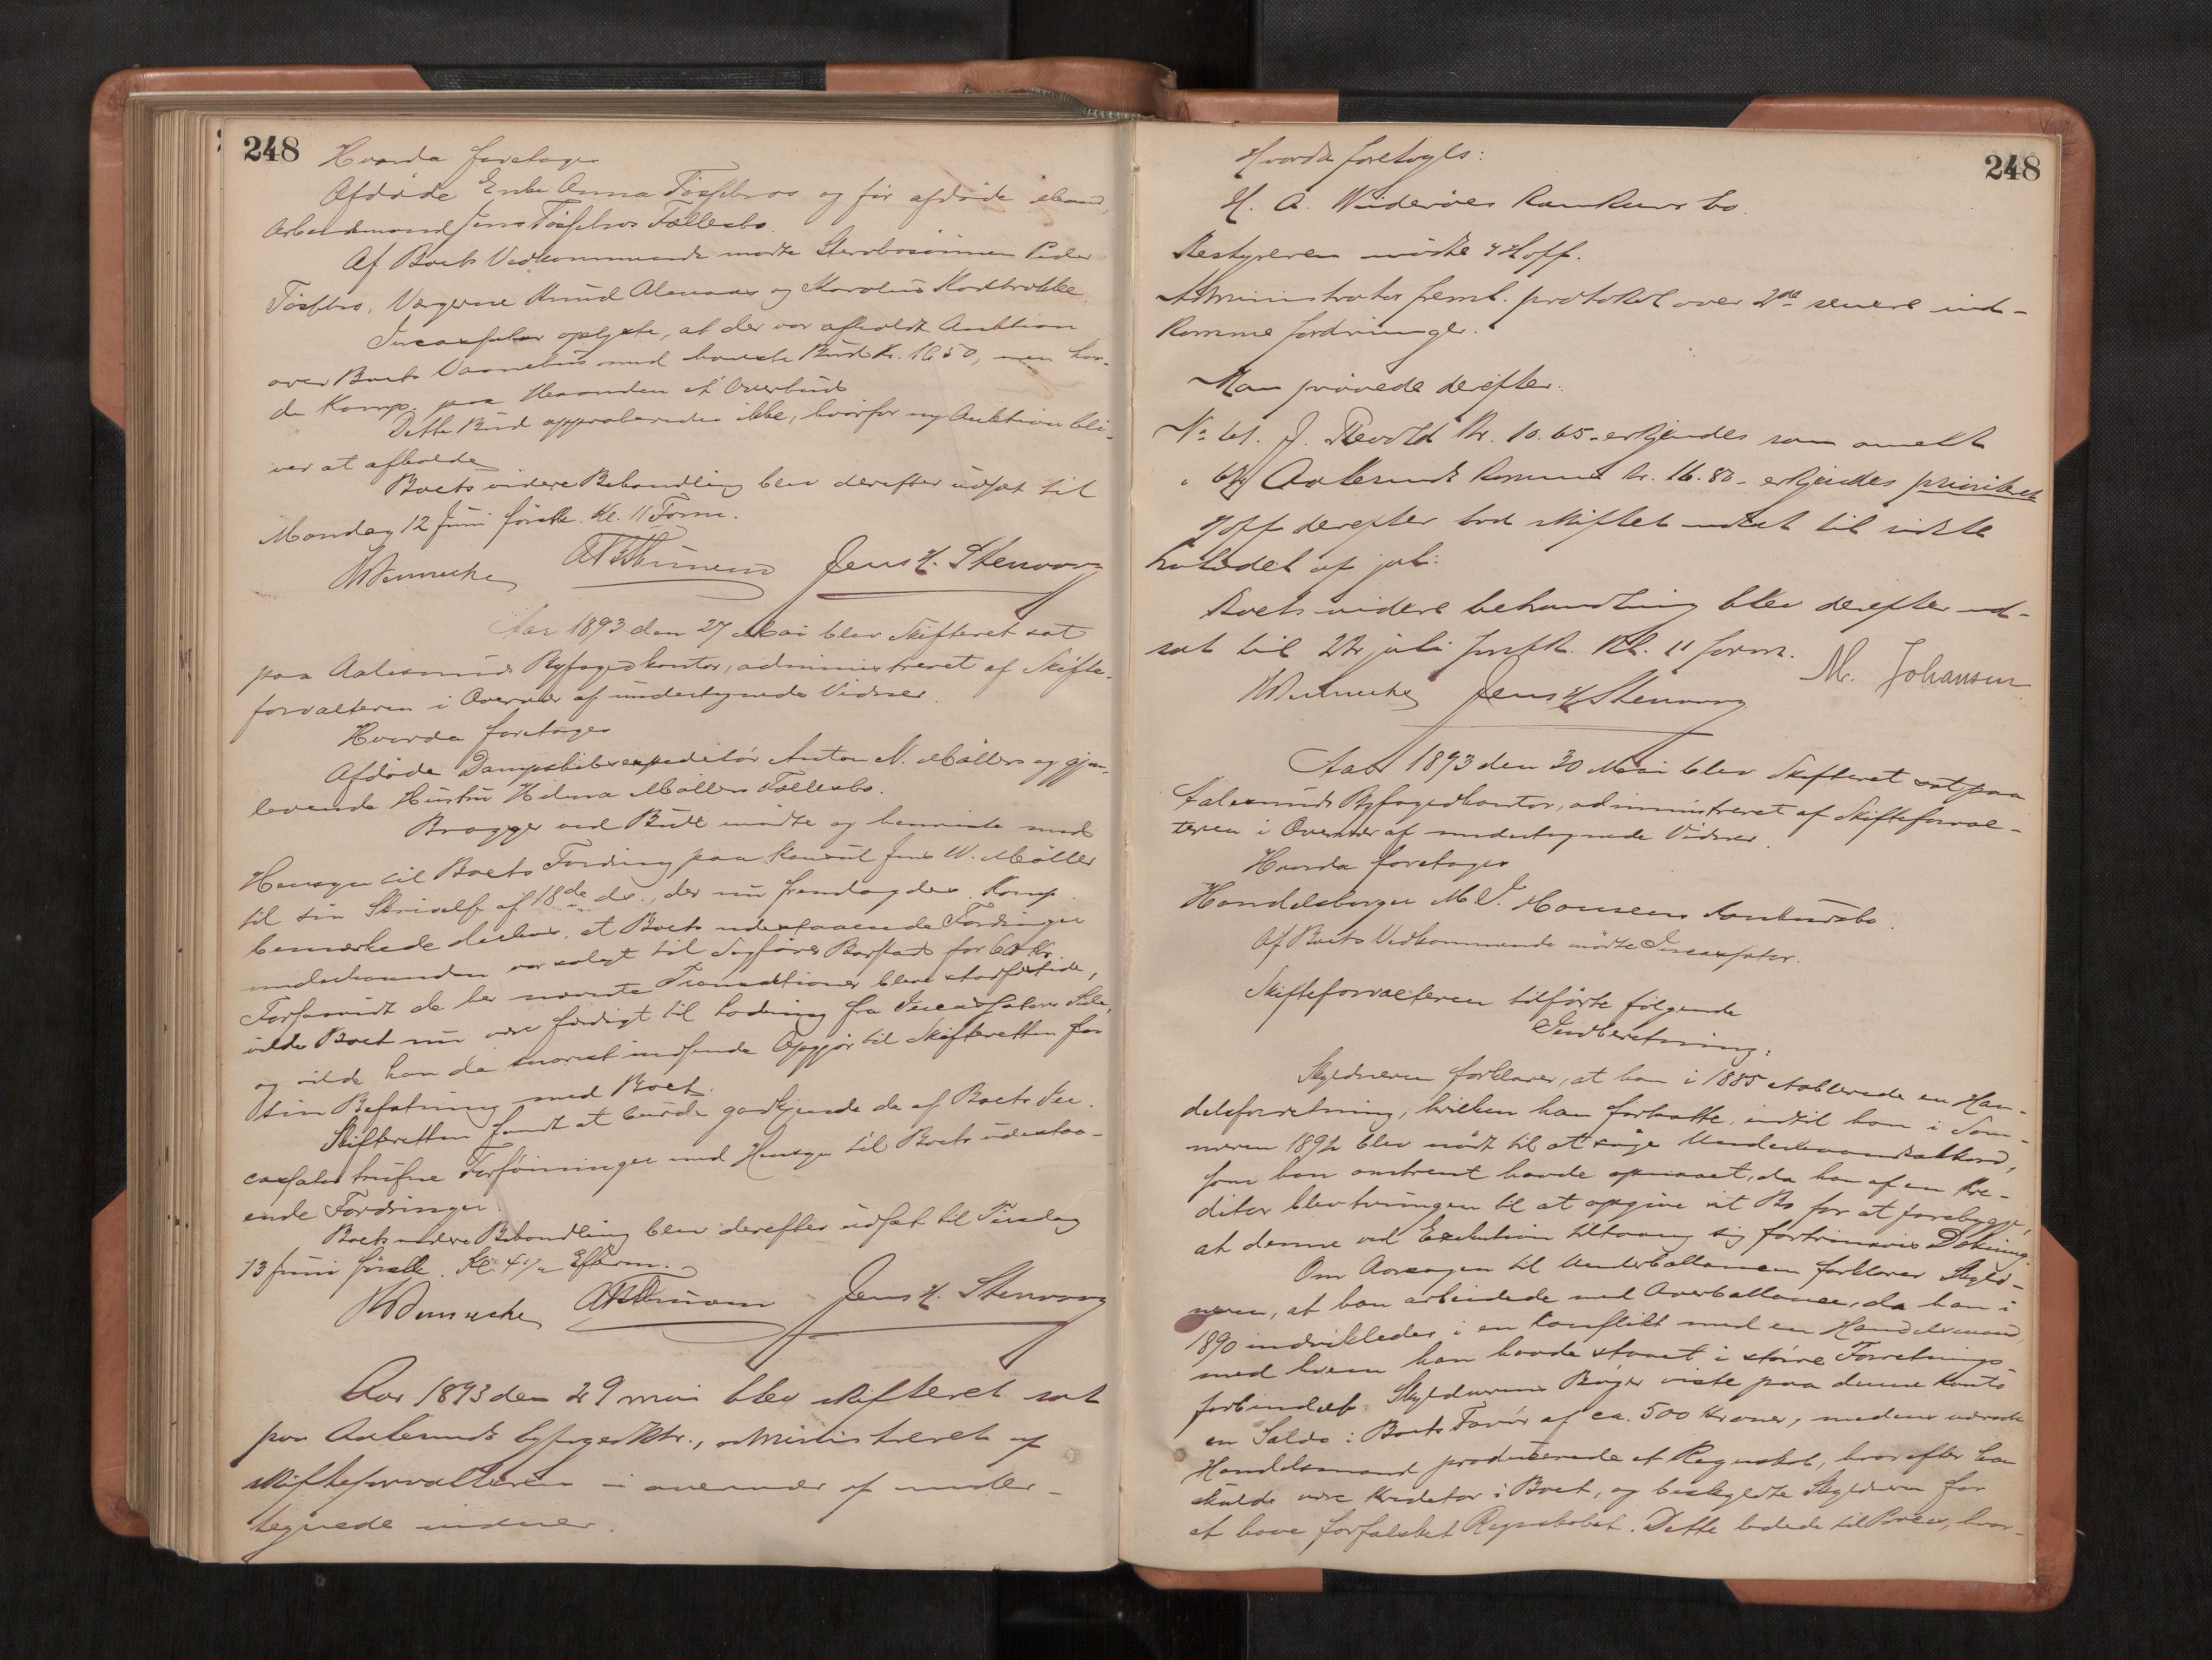 248
Hvorda foretoges
Afdøde Enke Anna Tösfebros og før afdøde Mand,
Arbeidsmand Jens Tösfebros Fællesbo.
Af Boets Vedkommende mødte Stervbosønnen Peder
Tösfebro, Vægerne Knud Alenaes og Karolius
Incassator oplyste, at der var afholdt Auktion
over Boets Vaanehus med høieste Bud Kr. 1650, men hav-
de Komp. paa Haanden et Overbud
Dette Bud approberedes ikke, hvorfor ny Auktion bli-
ver at afholde
Boets videre Behandling blev derefter udsat til
Mandag 12 Juni førstk. Kl. 11 Form.
Jens H. Stenvaag
Aar 1893 den 27 Mai blev Skifteret sat
paa Aalesunds Byfogedkontor, administreret af Skifte-
forvalteren i Overvær af undertegnede Vidner.
Hvorda foretoges
Afdøde Dampskibsexpeditør Anton N. Møllers og gjen-
levende Hustru Helma Møllers Fællesbo.
Brøgger ved Bull mødte og henviste med
Hensyn til Boets Fordring paa Konsul Jens W. Møller
til sin Skrivelse af 18de ds., der nu fremlagdes. Komp.
bemærkede derhos, at Boets udestaaende Fordringer
underhaanden var solgt til Sagfører Barstad for 60 Kr.
Forsaavidt de her nævnte Transaktioner blev stadfæstede,
vilde Boet nu være færdigt til Lodning fra Incassators Side,
og vilde han da snarest indsende Opgjør til Skifteretten for
sin Befatning med Boet.
Skifteretten fandt at burde godkjende de af Boets In-
cassator trufne Forføininger med Hensyn til Boets udestaa-
ende Fordringer.
Boets videre Behandling blev derefter udsat til Tirsdag
13 Juni førstk. Kl. 4 1/2 Efterm.
Jens H. Stenvaag
Aar 1893 den 29 mai blev skifteret sat
paa Aalesunds byfogedktr., administreret af
skifteforvalteren i overvær af under-
tegnede vidner.
248
Hvorda foretoges:
H. A. Widerøes Konkursbo.
Bestyreren mødte
Administrator freml. protokol over 2de senere ind-
komme fordringer.
Man prøvede derefter:
No 61. J. Devold Kr. 10.65 - erkjendes som anmeldt
" 62 Aalesunds Kommune Kr. 16.80 - erkjendes prioriteret
derefter bad skiftet udsat til sidste
halvdel af juli.
Boets videre behandling blev derefter ud-
sat til 22 juli førstk. Kl. 11 form.
Jens H Stenvaag M. Johansen
Aar 1893 den 30 Mai blev Skifteret sat paa
Aalesunds Byfogedkontor, administreret af Skifteforval-
teren i Overvær af undertegnede Vidner.
Hvorda foretoges
Handelsborger M. J. Monsens Konkursbo.
Af Boets Vedkommende mødte Incassator.
Skifteforvalteren tilførte følgende
Indberetning:
Skyldneren forklarer, at han i 1885 etablerede en Han-
delsforretning, hvilken han fortsatte, indtil han i Som-
meren 1892 blev nødt til at søge Underhaandsakkord,
som han omtrent havde opnaaet, da han af en Kre-
ditor blev tvungen til at opgive sit Bo for at forebygge,
at denne ved Exekution tiltvang sig fortrinsvis Dækning
Om Aarsagen til Underballancen forklarer Skyld-
neren, at han arbeidede med Overballance, da han i
1890 indvikledes i en Konflikt med en Handelsmand,
med hvem han havde staaet i større Forretnings-
forbindelse. Skyldnerens Bøger viste paa denne Konto
en Saldo i Boets Favør af ca. 500 Kroner, medens nævnte
Handelsmand producerede et Regnskab, hvorefter han
skulde være Kreditor i Boet, og beskyldte Skyldneren for
at have forfalsket Regnskabet. Dette ledede til Proces, hvor-